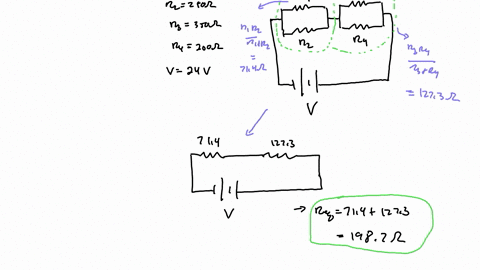 R₂ = 250Ω
R₃ = 350Ω
R₄ = 200Ω
V = 24 V
R₁R₂
R₁+R₂
=
71.4Ω
R₂
R₄
R₃R₄
R₃+R₄
= 127.3Ω
V
71.4
127.3
V
→ Req = 71.4 + 127.3
= 198.7Ω